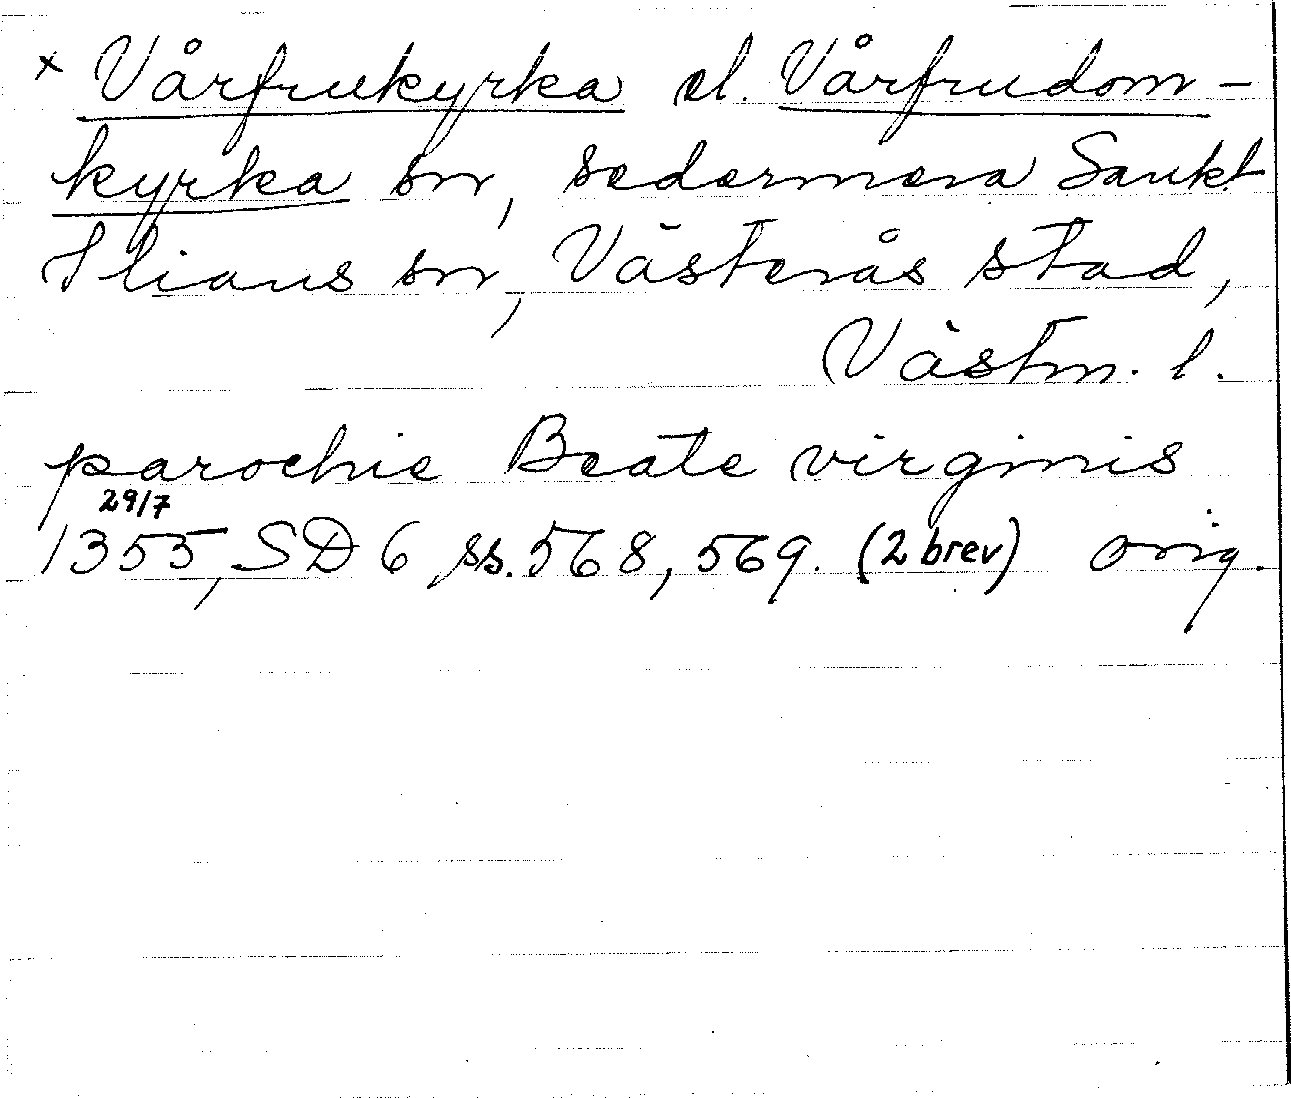 × Vårfrukyrka el. Vårfrudom-
kyrka sn, sedermera Sankt
Ilians sn, Västerås stad,
Västm. l.
parochie Beate virginis
29/7
1355, SD 6 ss. 568, 569. (2 brev) orig.